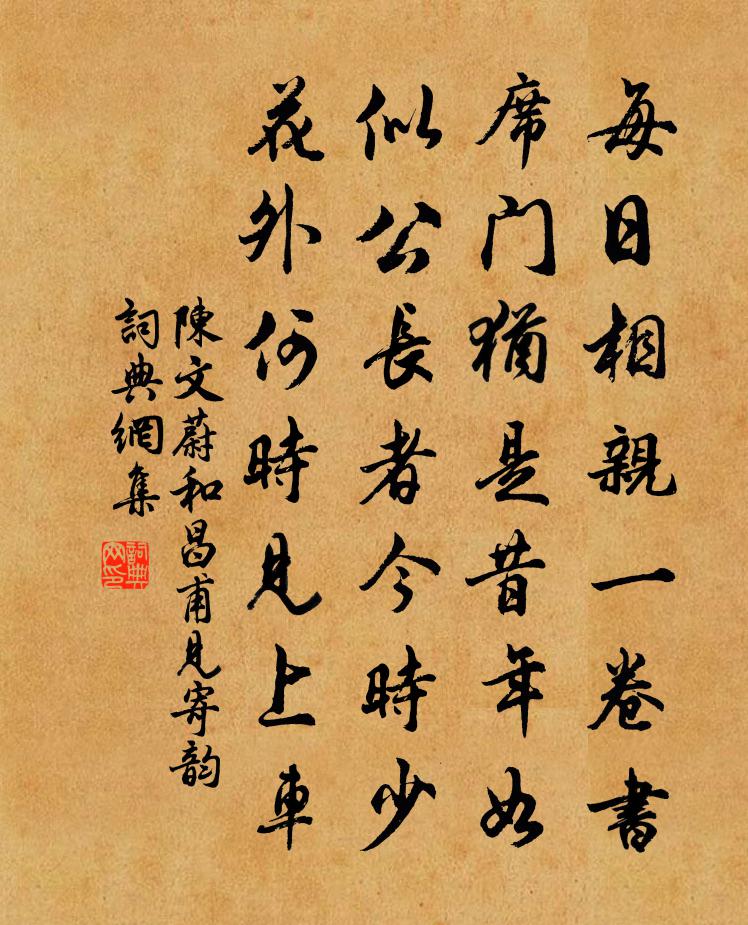 每日相親一卷書
席门猶是昔年如
似公長者今時少
花外何時見上車
陳文蔚和昌甫見寄韵
詞典網集
詞典網印